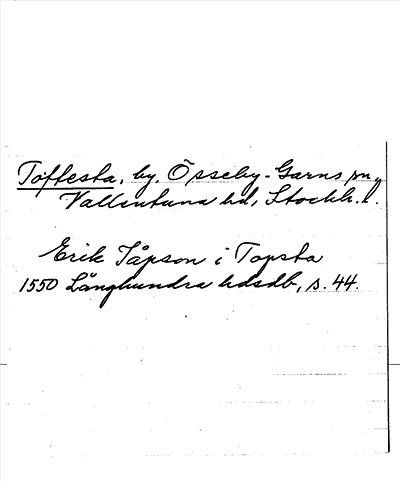 Toftesta, by, Össeby-Garns sn,
Vallentuna hd, Stockh. l.
Erik Jåpson i Topsta
1550 Långhundra hdsdb, s. 44.